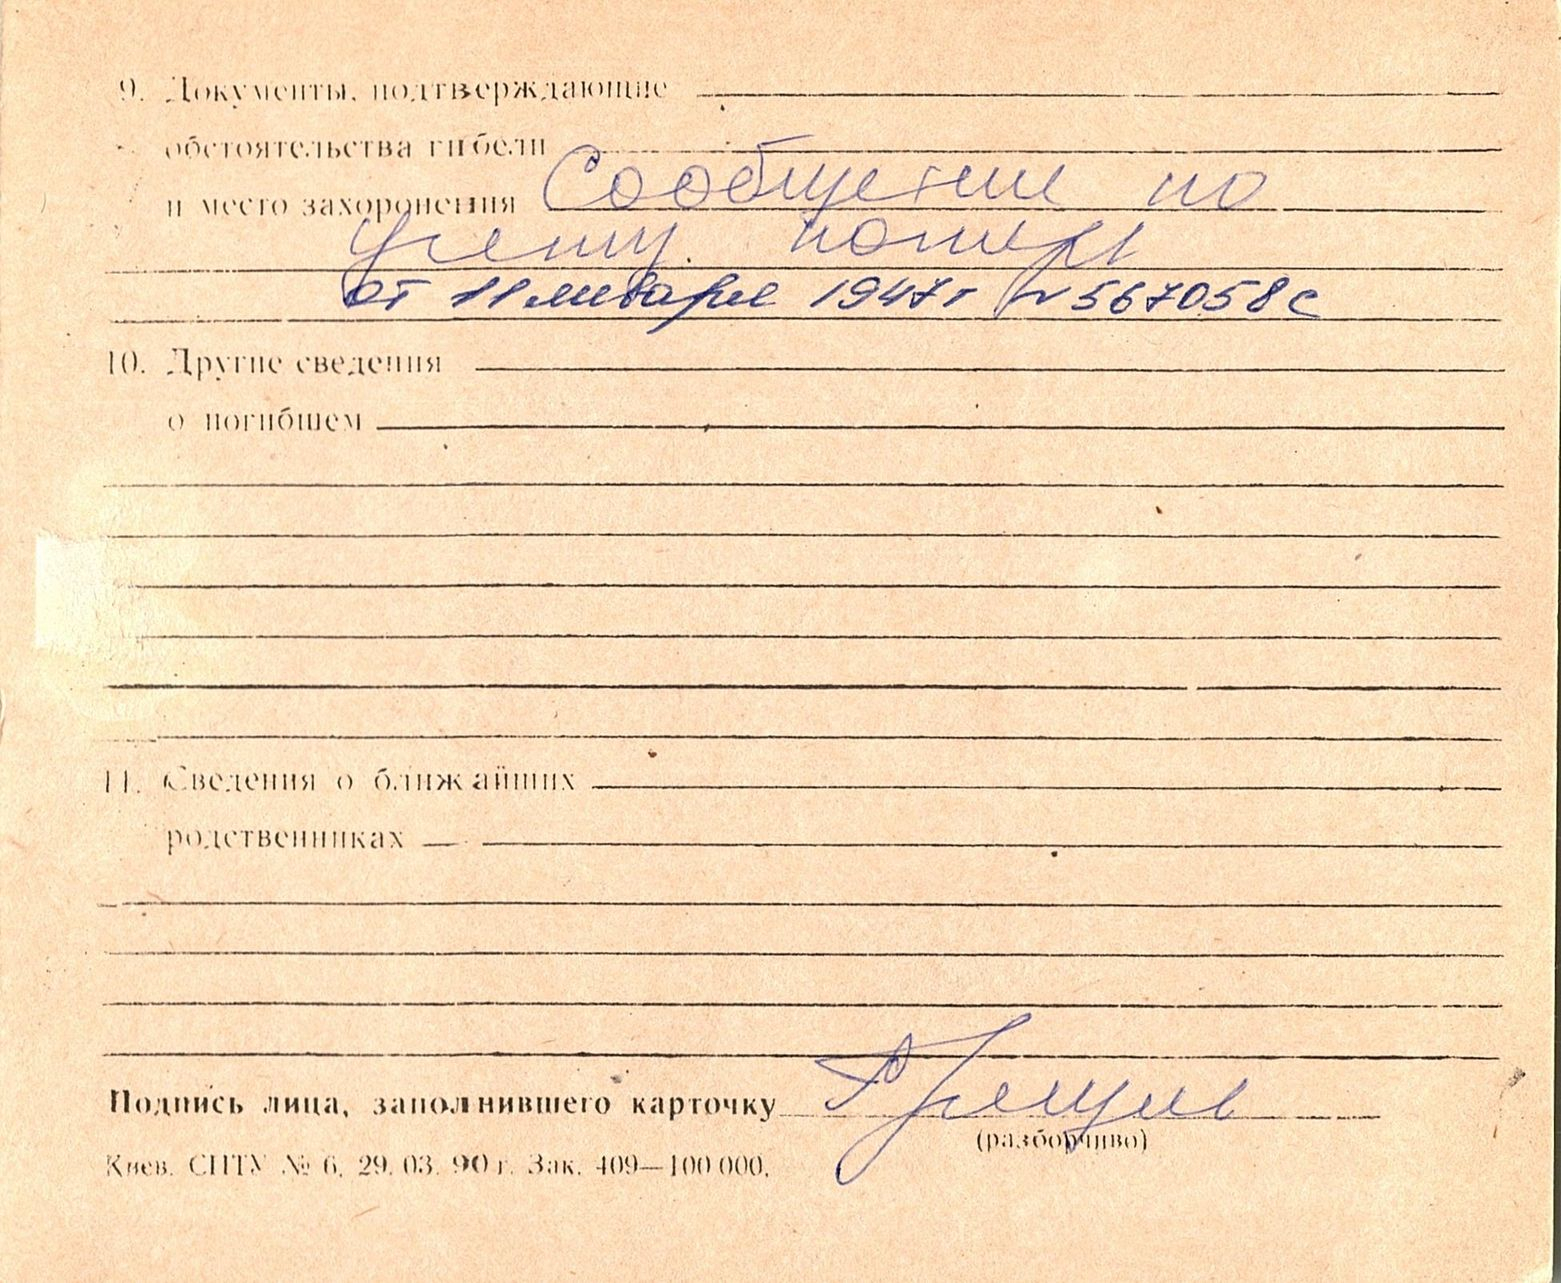 9. Документы, подтверждающие
обстоятельства гибели
и место захоронения Сообщение по
учету потерь
от 11 января 1947г N 567058с
10. Другие сведения
о погибшем
11. Сведения о ближайших
родственниках
Подпись лица, заполнившего карточку
(разборчиво)
Киев. СПТУ № 6. 29. 03. 90 г. Зак. 409—100 000.